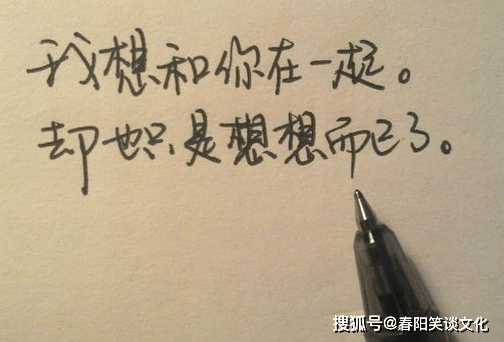 我想和你在一起。
却也只是想想而已了。
搜狐号@春阳笑谈文化